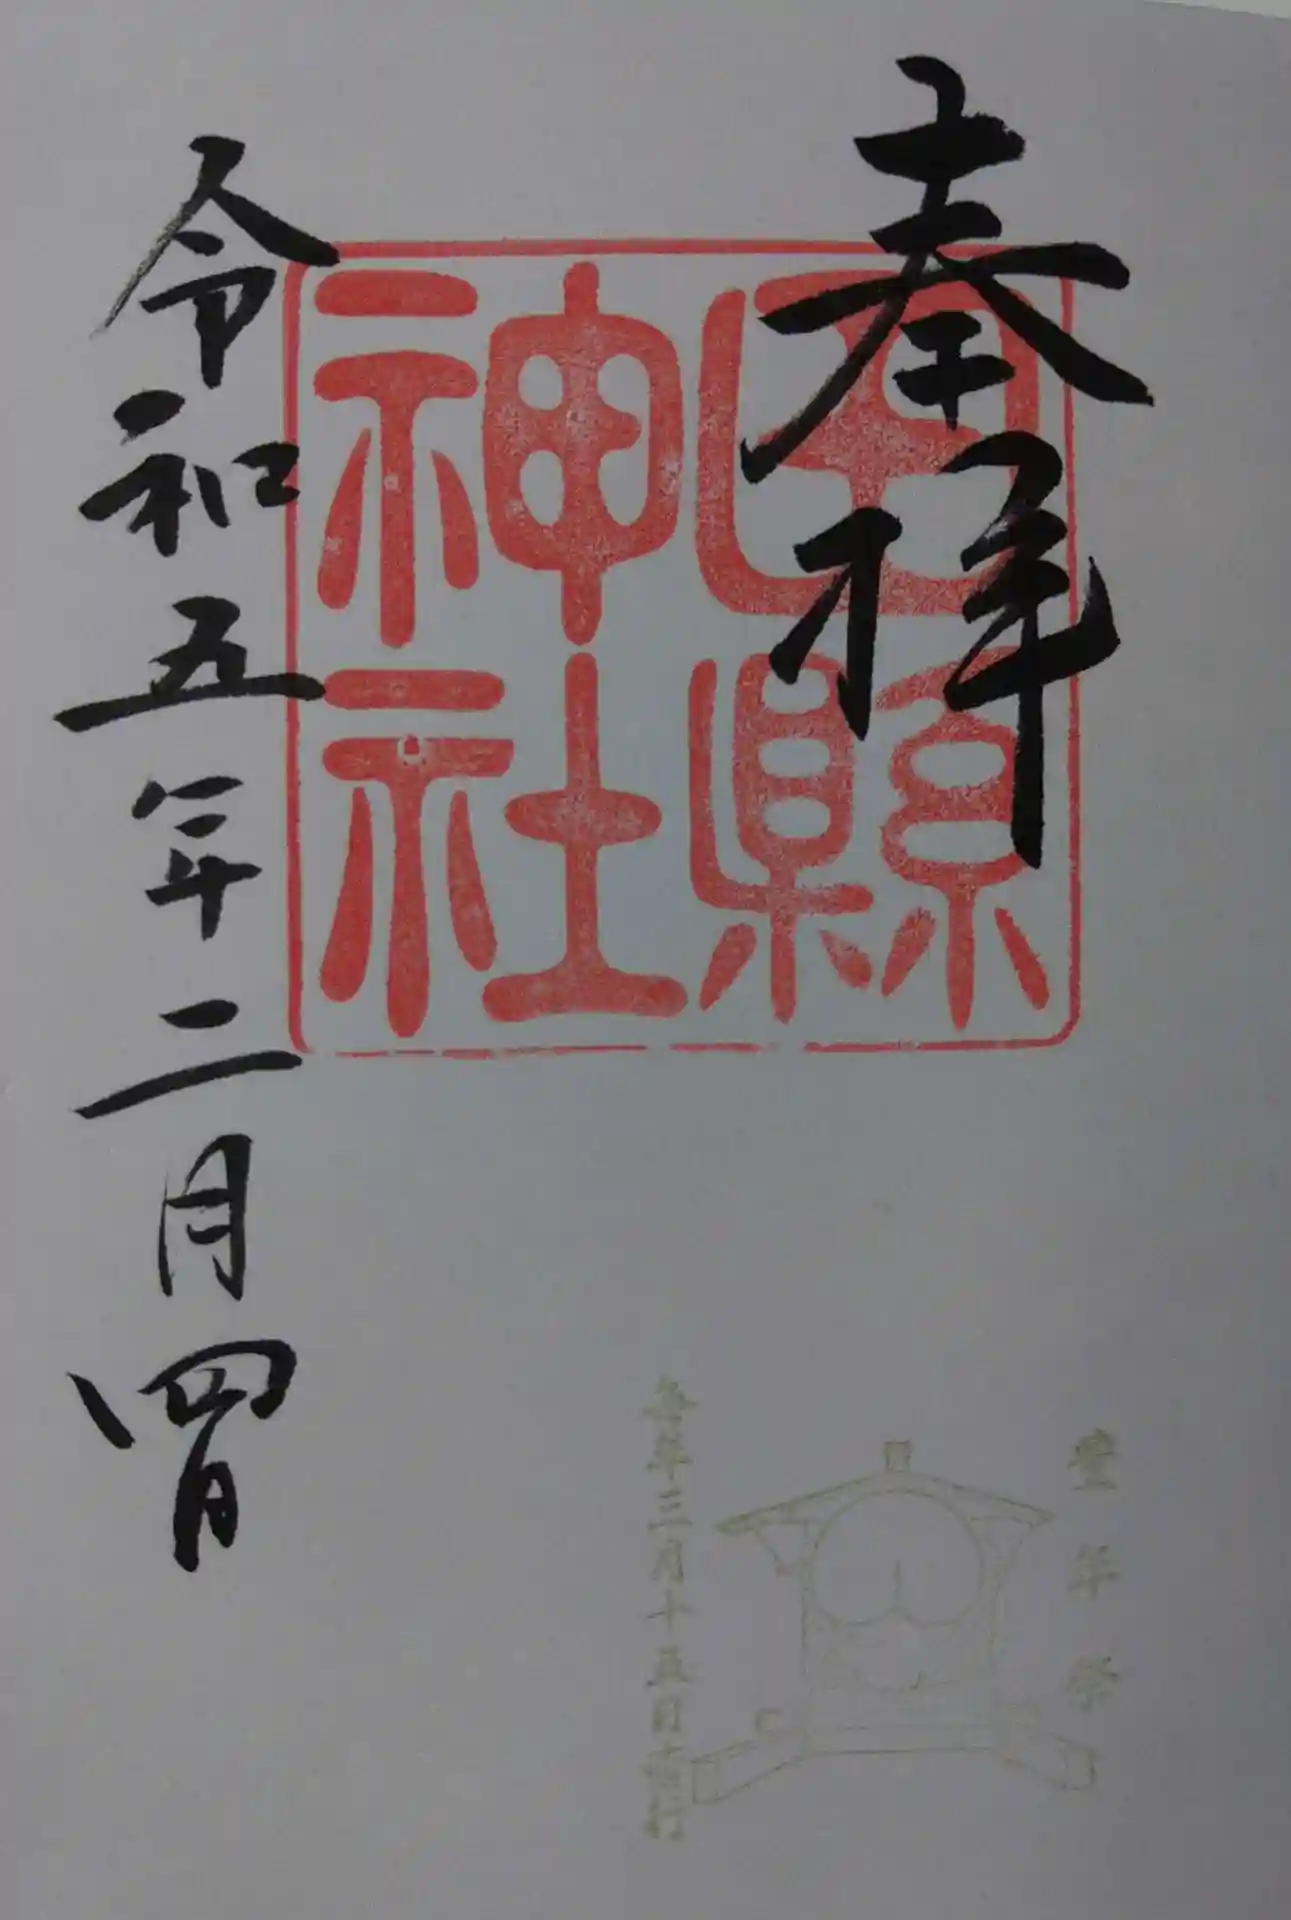 奉拝
田縣神社
豊年祭
毎年三月十五日斎行
令和五年二月四日